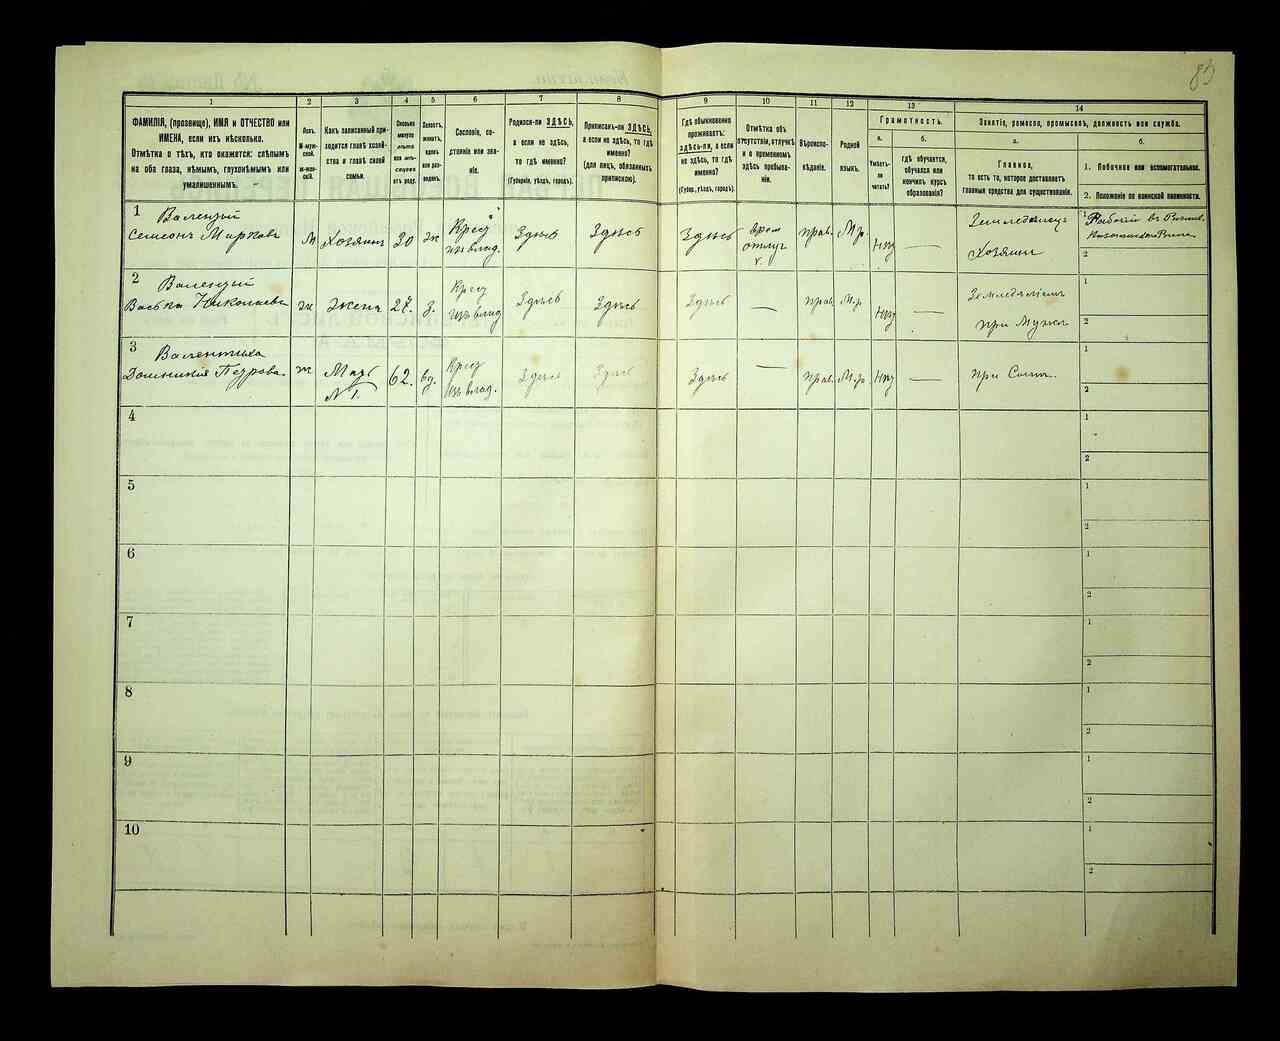 83
1 2 3 4 5 6 7 8 9 10 11 12 13 14
ФАМИЛІЯ, (прозвище), ИМЯ и ОТЧЕСТВО или
ИМЕНА, если ихъ нѣсколько.
Отмѣтка о тѣхъ, кто окажется: слѣпымъ
на оба глаза, нѣмымъ, глухонѣмымъ или
умалишеннымъ.
Полъ.
М-муж-
ской.
ж-жен-
скій.
Какъ записанный при-
ходится главѣ хозяй-
ства и главѣ своей
семьи.
Сколько
минуло
лѣтъ
или мѣ-
сяцевъ
отъ роду.
Холостъ,
женатъ,
вдовъ
или раз-
веденъ.
Сословіе, со-
стояніе или зва-
ніе.
Родился-ли ЗДѢСЬ,
а если не здѣсь,
то гдѣ именно?
(Губернія, уѣздъ, городъ).
Приписанъ-ли ЗДѢСЬ,
а если не здѣсь, то гдѣ
именно?
(для лицъ, обязанныхъ
припискою).
Гдѣ обыкновенно
проживаетъ:
здѣсь-ли, а если
не здѣсь, то гдѣ
именно?
(Губер., уѣздъ, городъ).
Отмѣтка объ
отсутствіи, отлучкѣ
и о временномъ
здѣсь пребыва-
ніи.
Вѣроиспо-
вѣданіе.
Родной
языкъ.
Грамотность.
а.
Умѣетъ-
ли
читать?
б.
гдѣ обучается,
обучался или
кончилъ курсъ
образованія?
Занятіе, ремесло, промыселъ, должность или служба.
а.
Главное,
то есть то, которое доставляетъ
главныя средства для существованія.
б.
1. Побочное или вспомогательное.
2. Положеніе по воинской повинности.
1 Валентый
Семеонъ Марковъ
м Хозяинъ 30 ж
Крест
изъ влад.
Здѣсь Здѣсь Здѣсь
врем
отлуч
прав. М.р. Нѣт —
Земледѣлецъ
Хозяинъ
1 Рабочій въ
2
2 Валентый
Васька Николаева
ж жена 27. з.
Крест
изъ влад
Здѣсь Здѣсь Здѣсь — прав. М.р. Нѣт —
Земледѣліемъ
при Мужѣ
1
2
3 Валентыха
Домникія Петрова.
ж Мать
N 1.
62. вд.
Крест
изъ влад.
Здѣсь Здѣсь Здѣсь — прав. М.р Нѣт —
при Сынѣ.
1
2
4
1
2
5
1
2
6
1
2
7
1
2
8
1
2
9
1
2
10
1
2